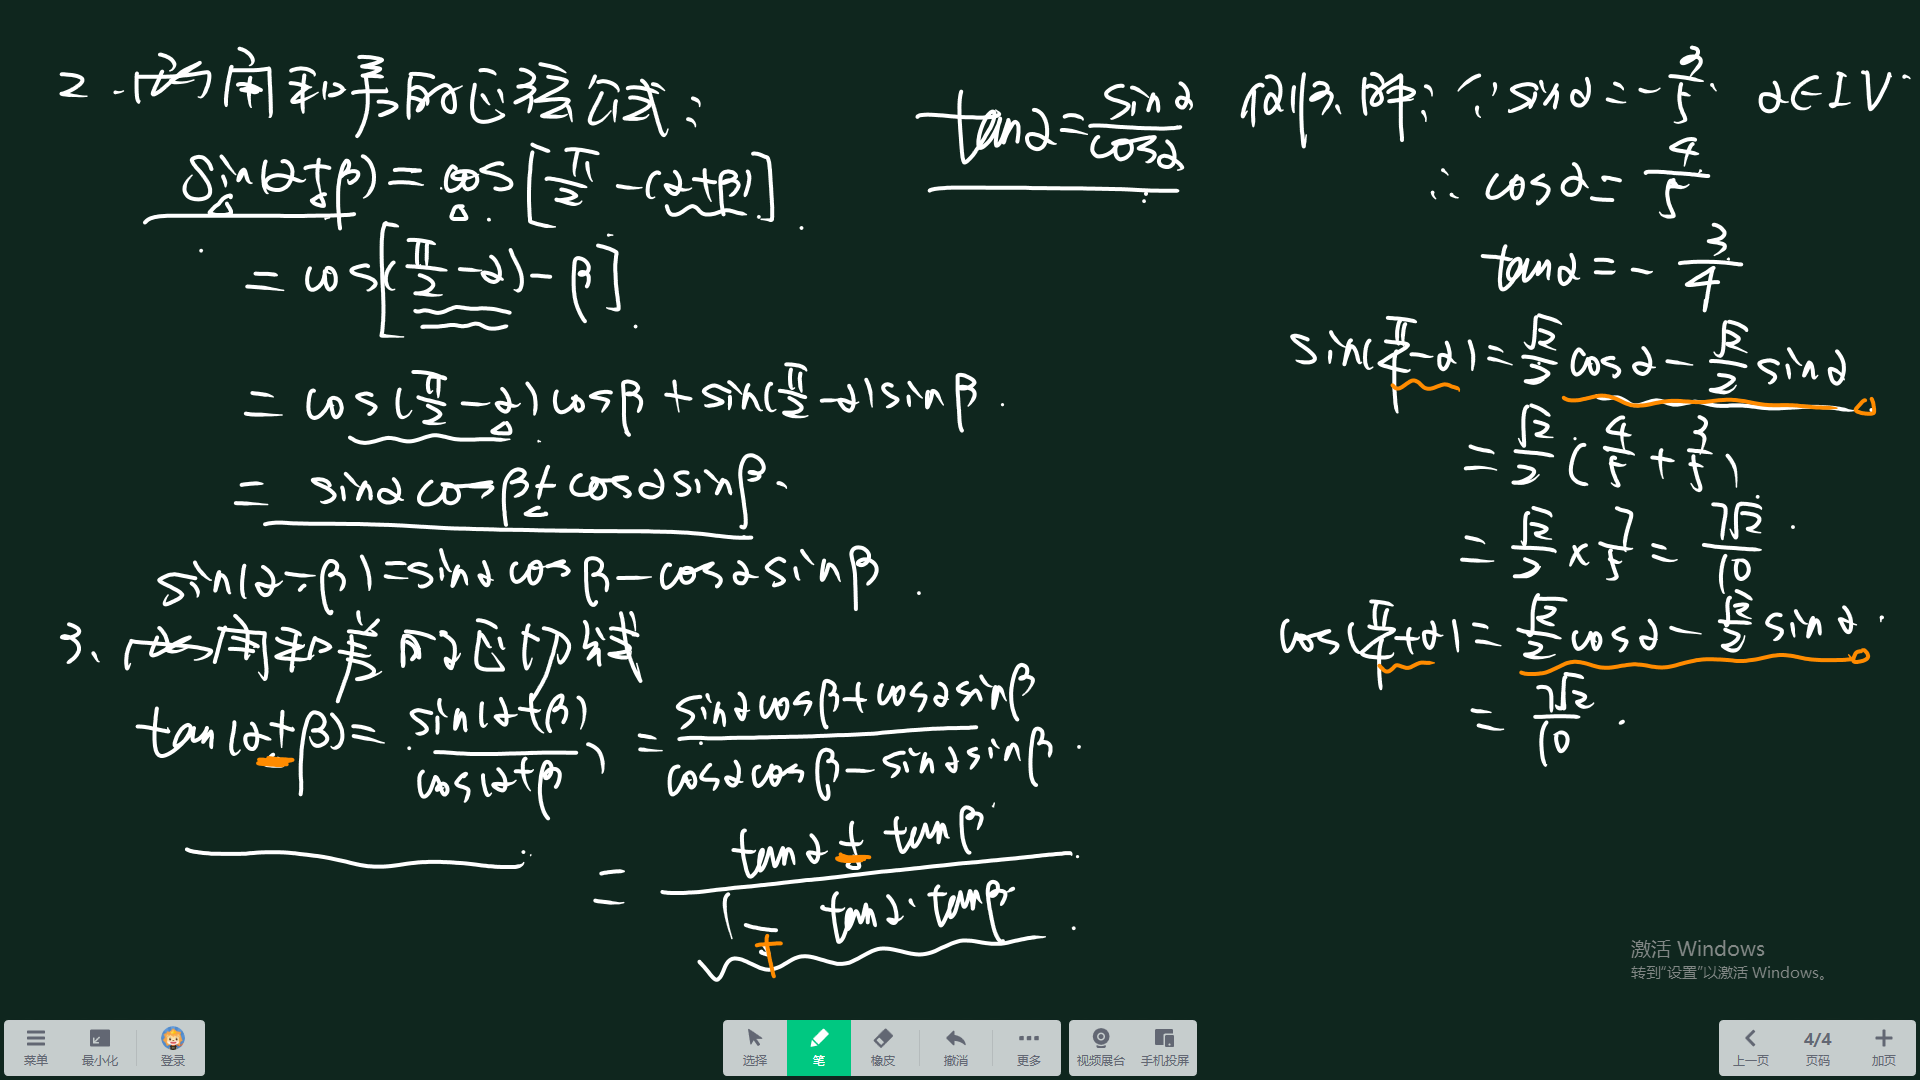 2. 两角和与差的正弦公式:
sin(α+β) = cos[π/2 -(α+β)]
= cos[(π/2 -α) - β]
= cos(π/2 -α)cosβ + sin(π/2 -α)sinβ
= sinαcosβ + cosαsinβ
sin(α-β) = sinαcosβ - cosαsinβ
3、两角和与差的正切公式
tan(α+β) = sin(α+β)/cos(α+β) = (sinαcosβ + cosαsinβ)/(cosαcosβ - sinαsinβ)
= (tanα ± tanβ)/(1 ∓ tanα·tanβ)
tanα = sinα/cosα
例3、解: ∵ sinα = -3/5, α∈IV
∴ cosα = 4/5
tanα = -3/4
sin(π/4 -α) = √2/2 cosα - √2/2 sinα
= √2/2 (4/5 + 3/5)
= √2/2 × 7/5 = 7√2/10
cos(π/4 +α) = √2/2 cosα - √2/2 sinα
= 7√2/10
激活 Windows
转到“设置”以激活 Windows。
菜单 最小化 登录 选择 笔 橡皮 撤消 更多 视频展台 手机投屏 上一页 4/4 页码 加页